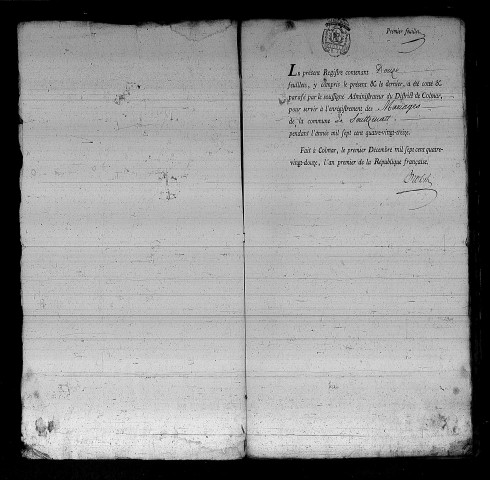 Premier feuillet
LE présent Registre contenant Douze
feuillets, y compris le présent & le dernier, a été coté &
parafé par le soussigné Administrateur du District de Colmar,
pour servir à l'enregistrement des Mariages
de la commune de Soultzmatt
pendant l'année mil sept cent quatre-vingt-treize.
Fait à Colmar, le premier Décembre mil sept cent quatre-
vingt-douze, l'an premier de la République française.